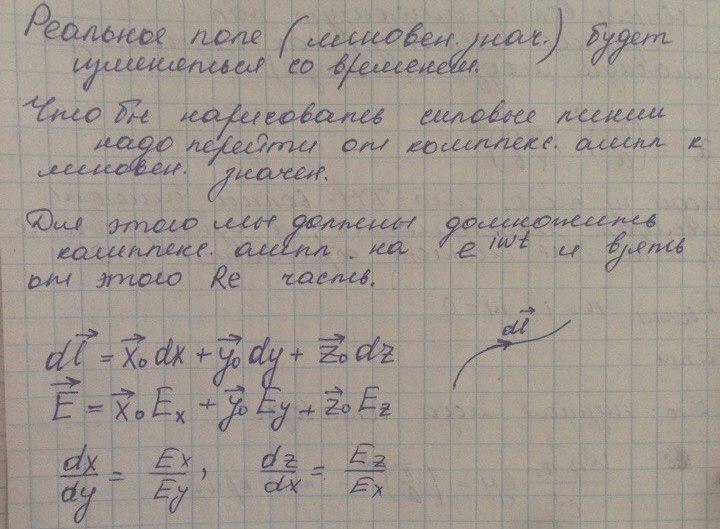 Реальное поле (мгновен. знач.) будет
изменяться со временем.
Что бы нарисовать силовые линии
надо перейти от комплекс. ампл к
мгновен. значен.
Для этого мы должны домножить
комплекс. ампл. на e^{iωt} и взять
от этого Re часть.
d\vec{l} = \vec{x}₀dx + \vec{y}₀dy + \vec{z}₀dz
d\vec{l}
\vec{E} = \vec{x}₀Eₓ + \vec{y}₀E_y + \vec{z}₀E_z
dx/dy = Ex/Ey, dz/dx = Ez/Ex